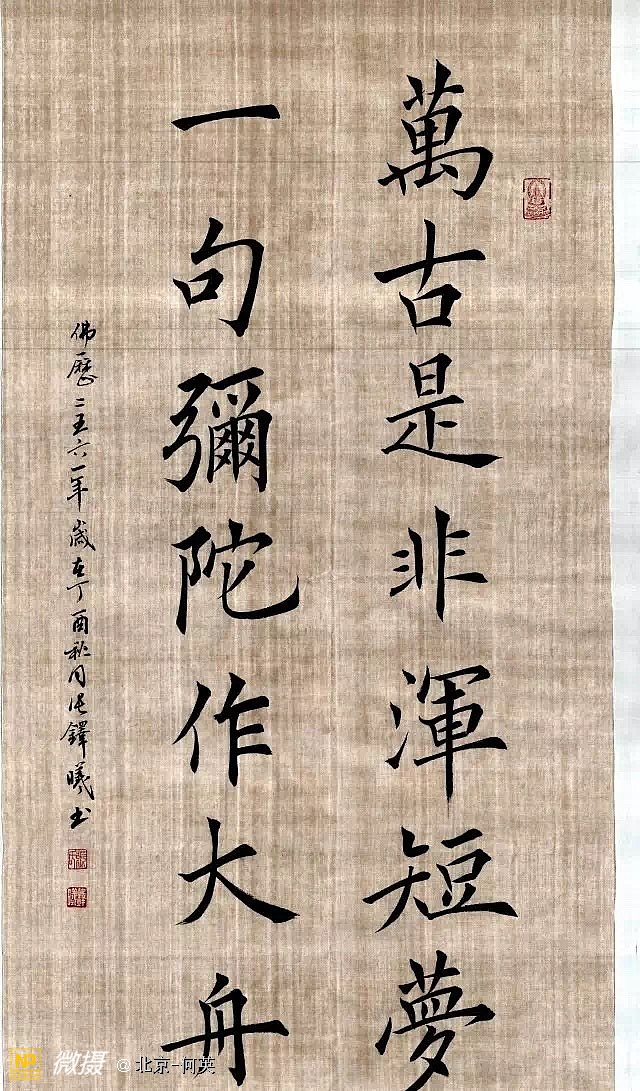 萬古是非渾短夢
一句彌陀作大舟
佛曆二五六一年歲在丁酉秋月張鐸曦书
微摄 @北京-何英